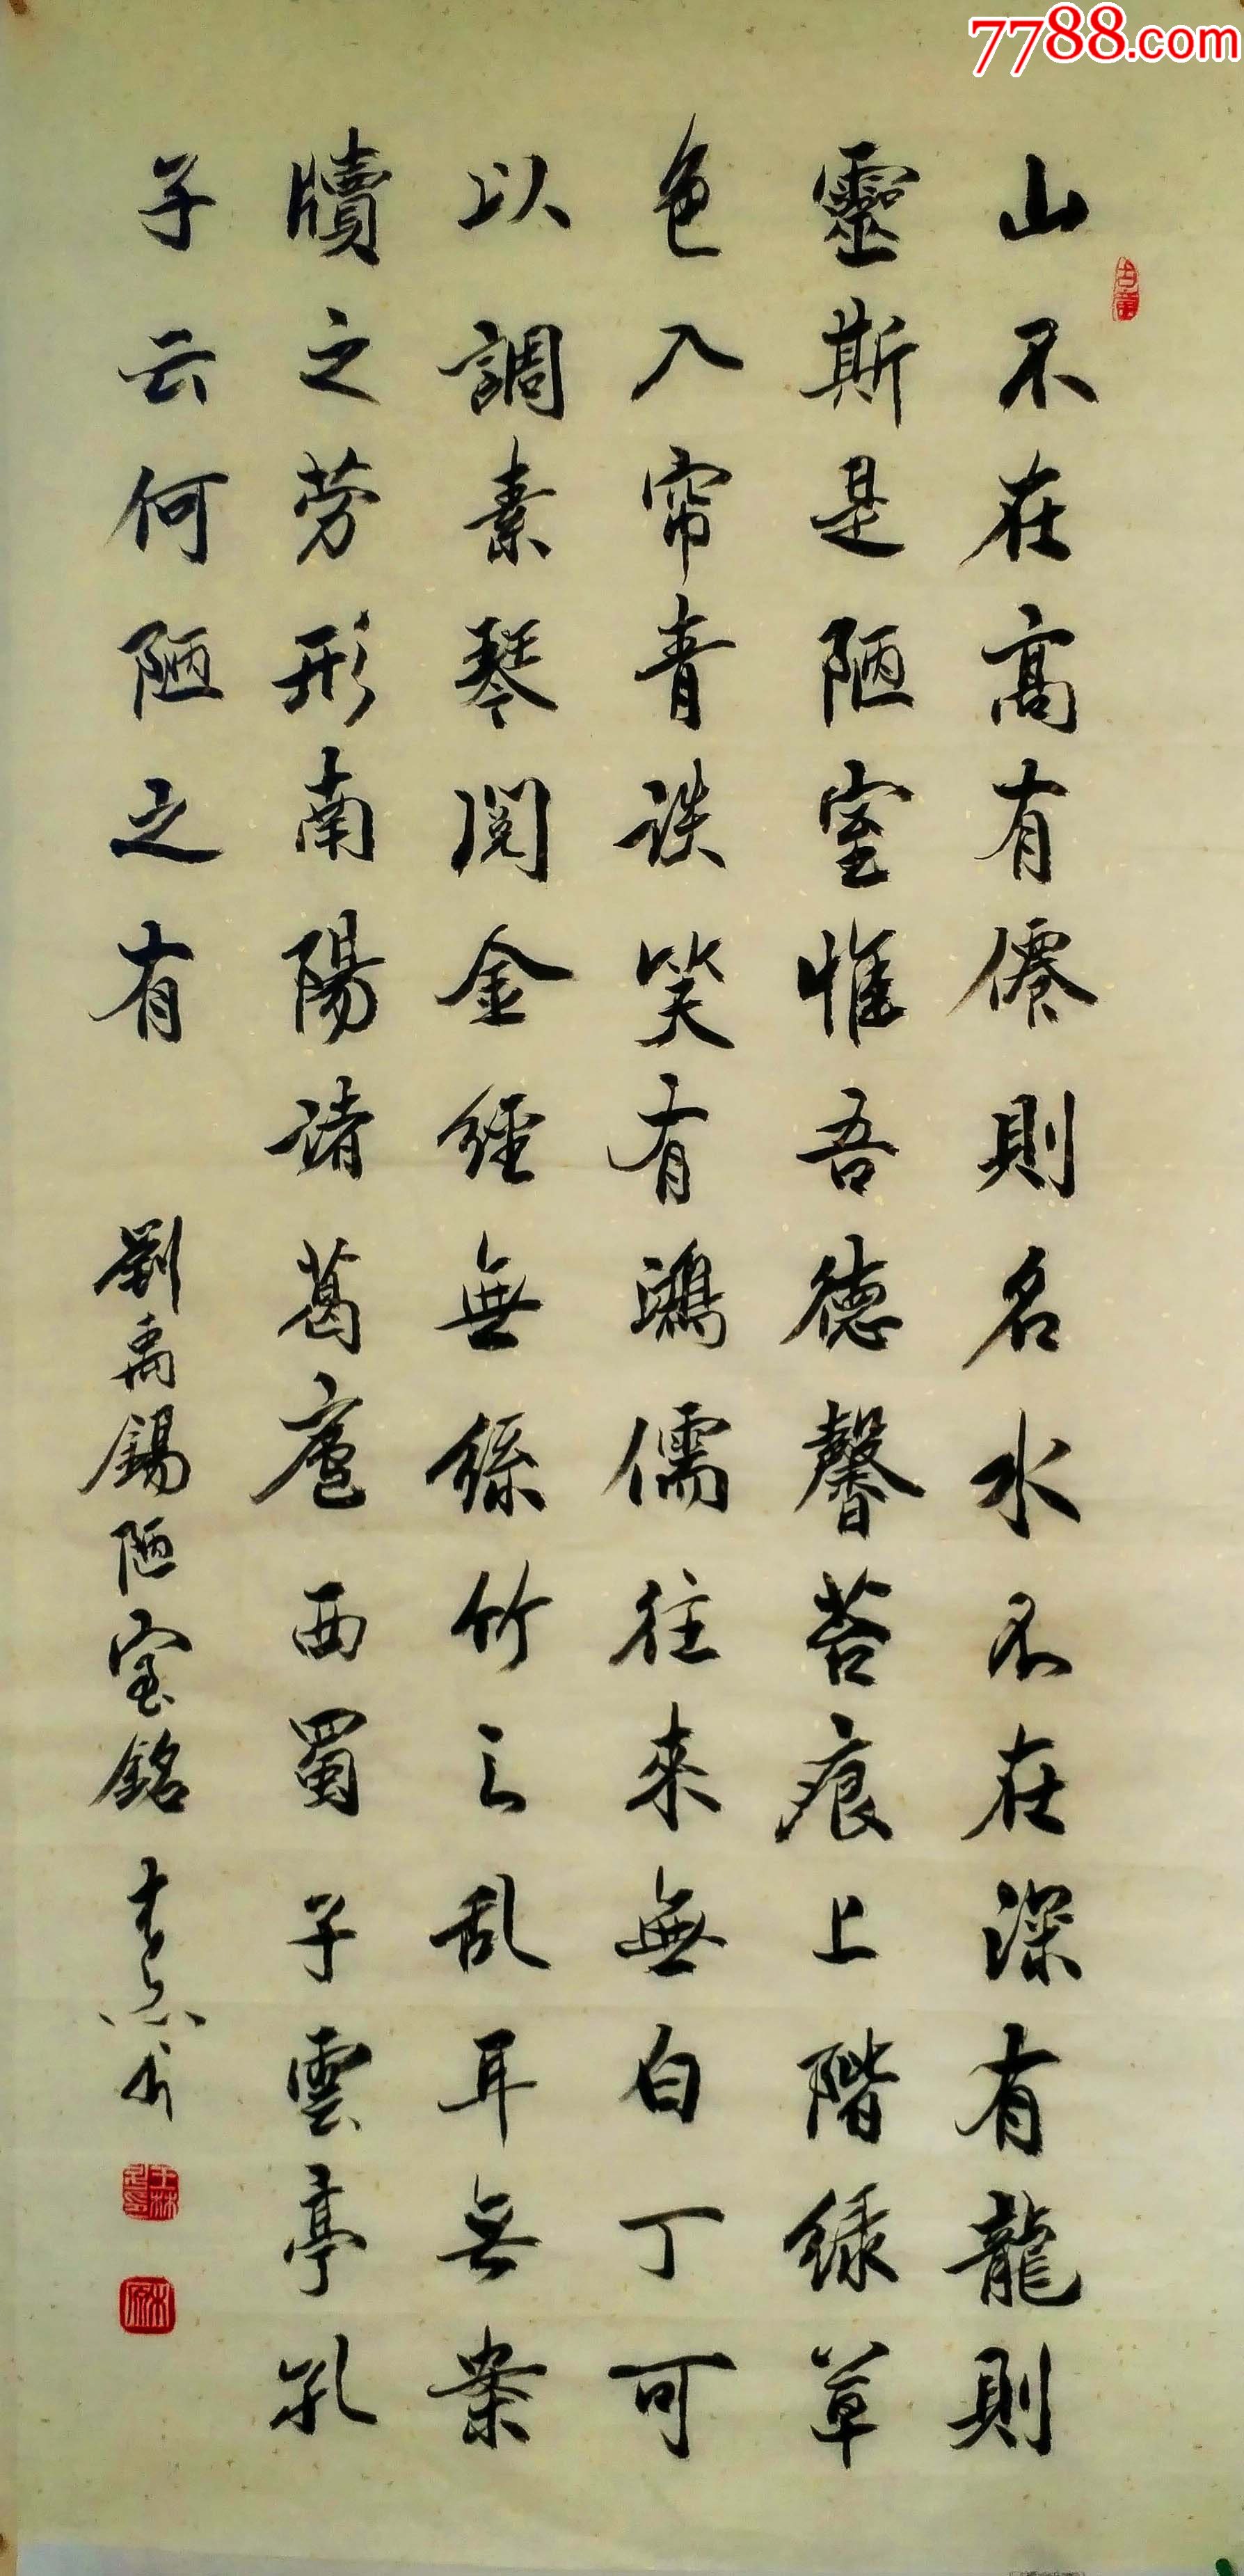 7788.com
山不在高有僊則名水不在深有龍則
靈斯是陋室惟吾德馨苔痕上階绿草
色入帘青谈笑有鴻儒往来無白丁可
以調素琴閱金經無絲竹之乱耳無案
牘之劳形南陽诸葛廬西蜀子雲亭孔
子云何陋之有
劉禹錫陋室銘